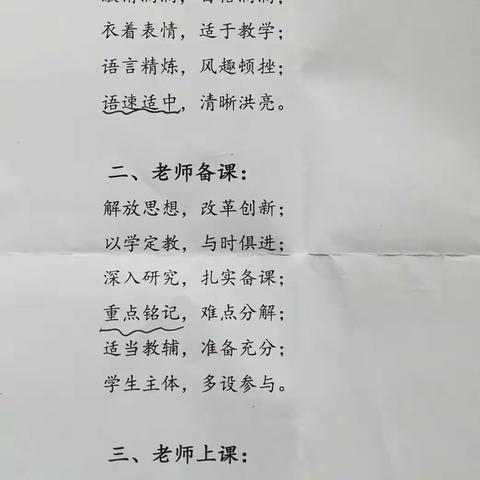 衣着表情，适于教学；
语言精炼，风趣顿挫；
语速适中，清晰洪亮。
二、老师备课：
解放思想，改革创新；
以学定教，与时俱进；
深入研究，扎实备课；
重点铭记，难点分解；
适当教辅，准备充分；
学生主体，多设参与。
三、老师上课：